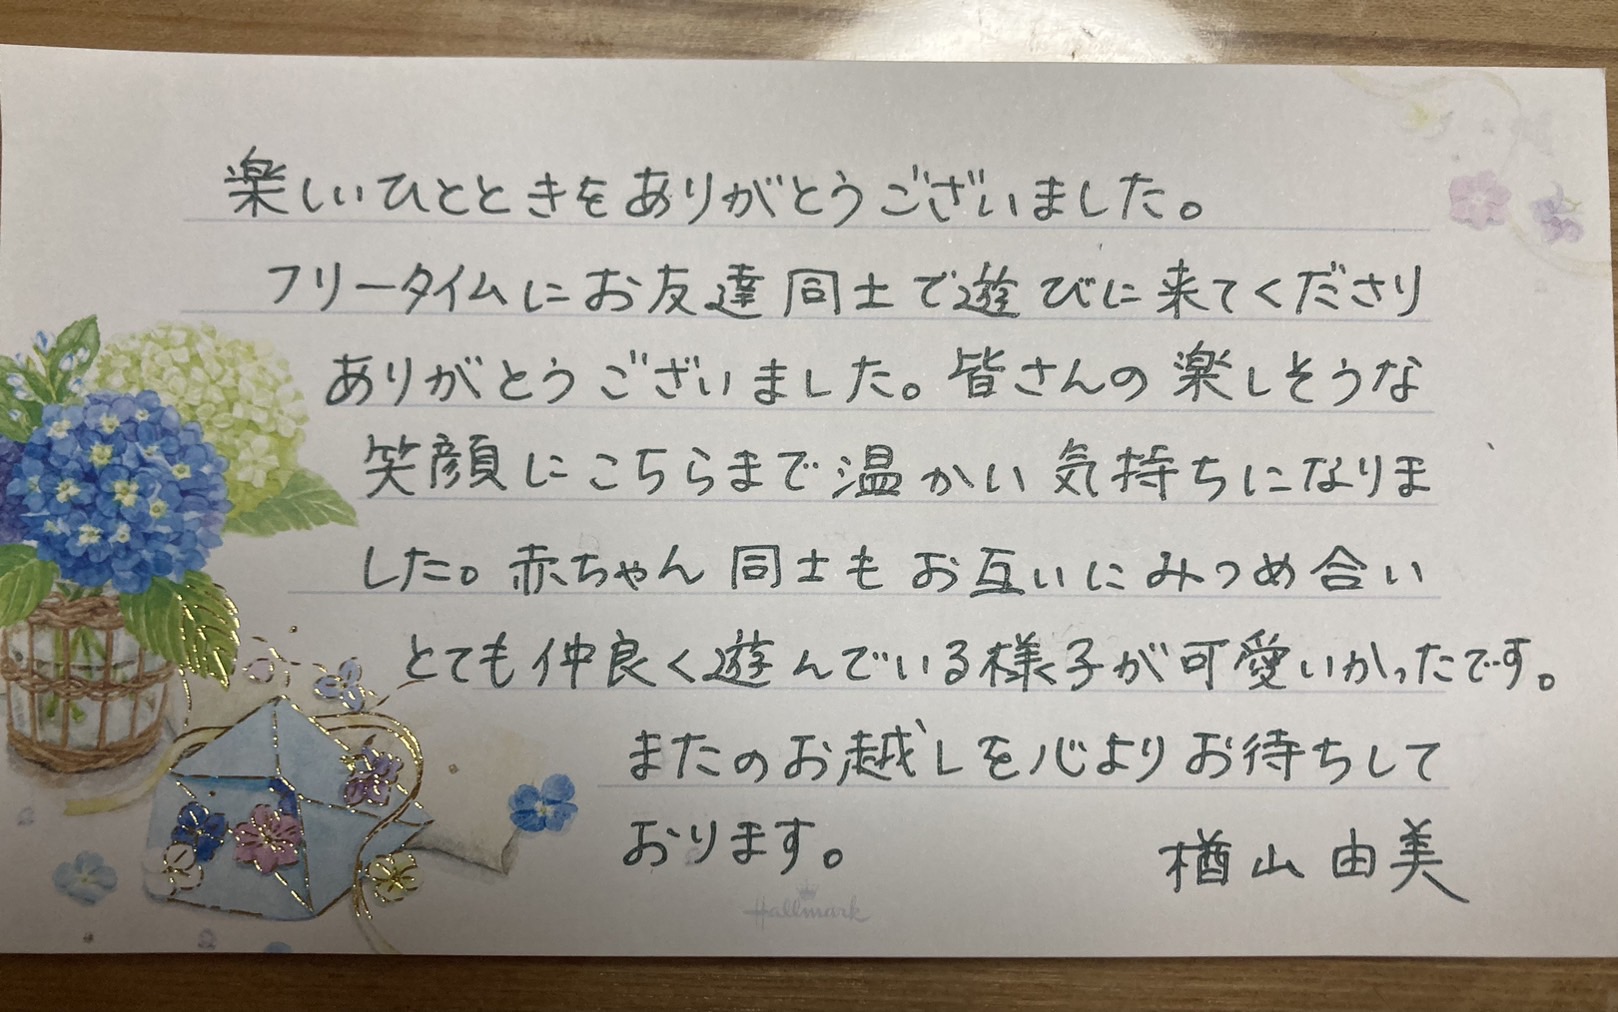 楽しいひとときをありがとうございました。
フリータイムにお友達同士で遊びに来てくださり
ありがとうございました。皆さんの楽しそうな
笑顔にこちらまで温かい気持ちになりま
した。赤ちゃん同士もお互いにみつめ合い
とても仲良く遊んでいる様子が可愛いかったです。
またのお越しを心よりお待ちして
おります。
楢山由美
Hallmark